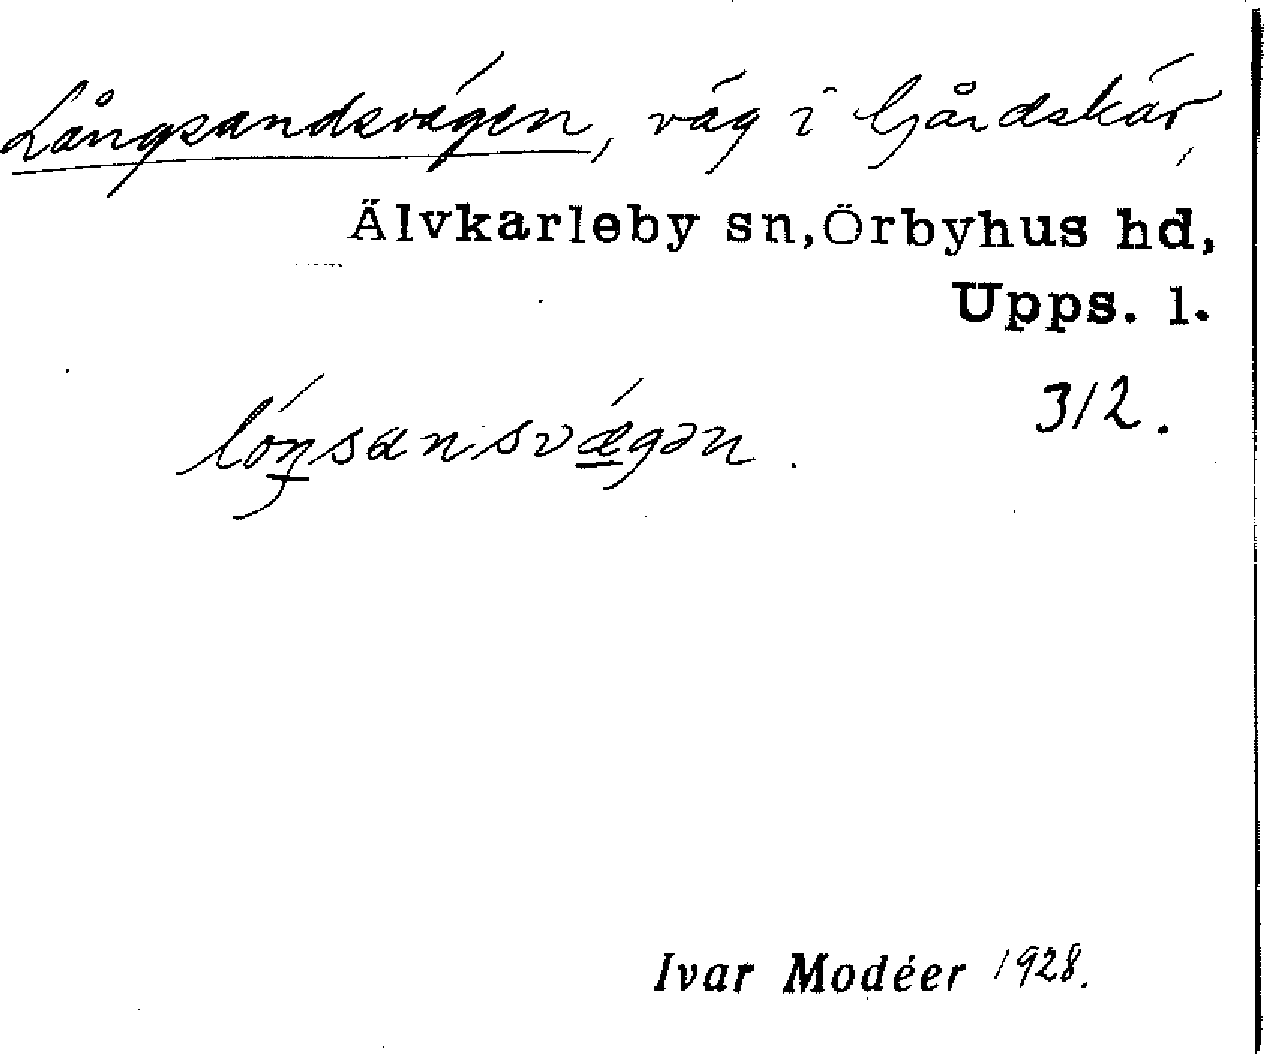 Långsandsvägen, väg i Gårdskär,
Älvkarleby sn, Örbyhus hd,
Upps. l.
312.
lóŋsansvǽgən.
Ivar Modéer 1928.